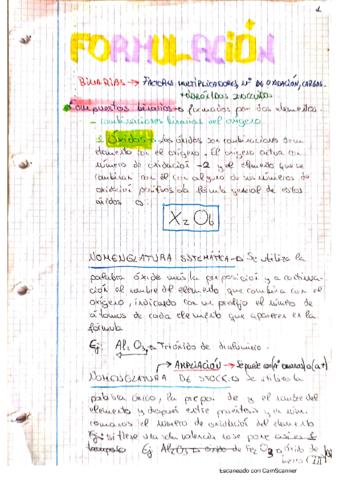 1
FORMULACIÓN
BINARIAS → FACTORES MULTIPLICADORES, Nº DE OXIDACIÓN, CARGAS.
Compuestos binarios → formados por dos elementos.
- combinaciones binarias del oxígeno
1. Óxidos → Los óxidos son combinaciones de un
elemento con el oxígeno. El oxígeno actúa con
número de oxidación -2 y el elemento que se
combina con él con alguno de sus números de
oxidación positivos. La fórmula general de estos
óxidos es:
X₂Ob
NOMENCLATURA SISTEMÁTICA → Se utiliza la
palabra óxido más la preposición y a continua-
ción el nombre del elemento que combina con el
oxígeno, indicando con un prefijo el número de
átomos de cada elemento que aparecen en la
fórmula
Ej: Al₂O₃ → Trióxido de dialuminio.
AMPLIACIÓN → Se puede
NOMENCLATURA DE STOCK → Se utiliza la
palabra óxido, la prepo de y el nombre del
elemento y después entre paréntesis y en núm.
romanos el número de oxidación del elemento
si tiene una sola valencia no se pone
Ej: Al₂O₃ → óxido de
Escaneado con CamScanner